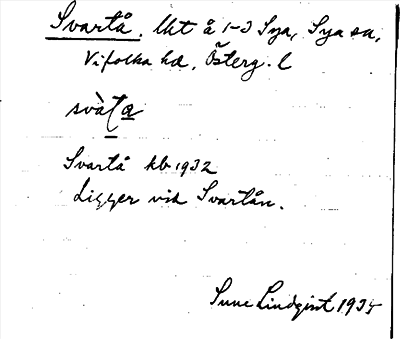 Svartå. Lht å 1-3 Sya, Sya sn,
Vifolka hd, Österg. l
Svartå kb 1932
Ligger vid Svartån.
Sune Lindqvist 1935